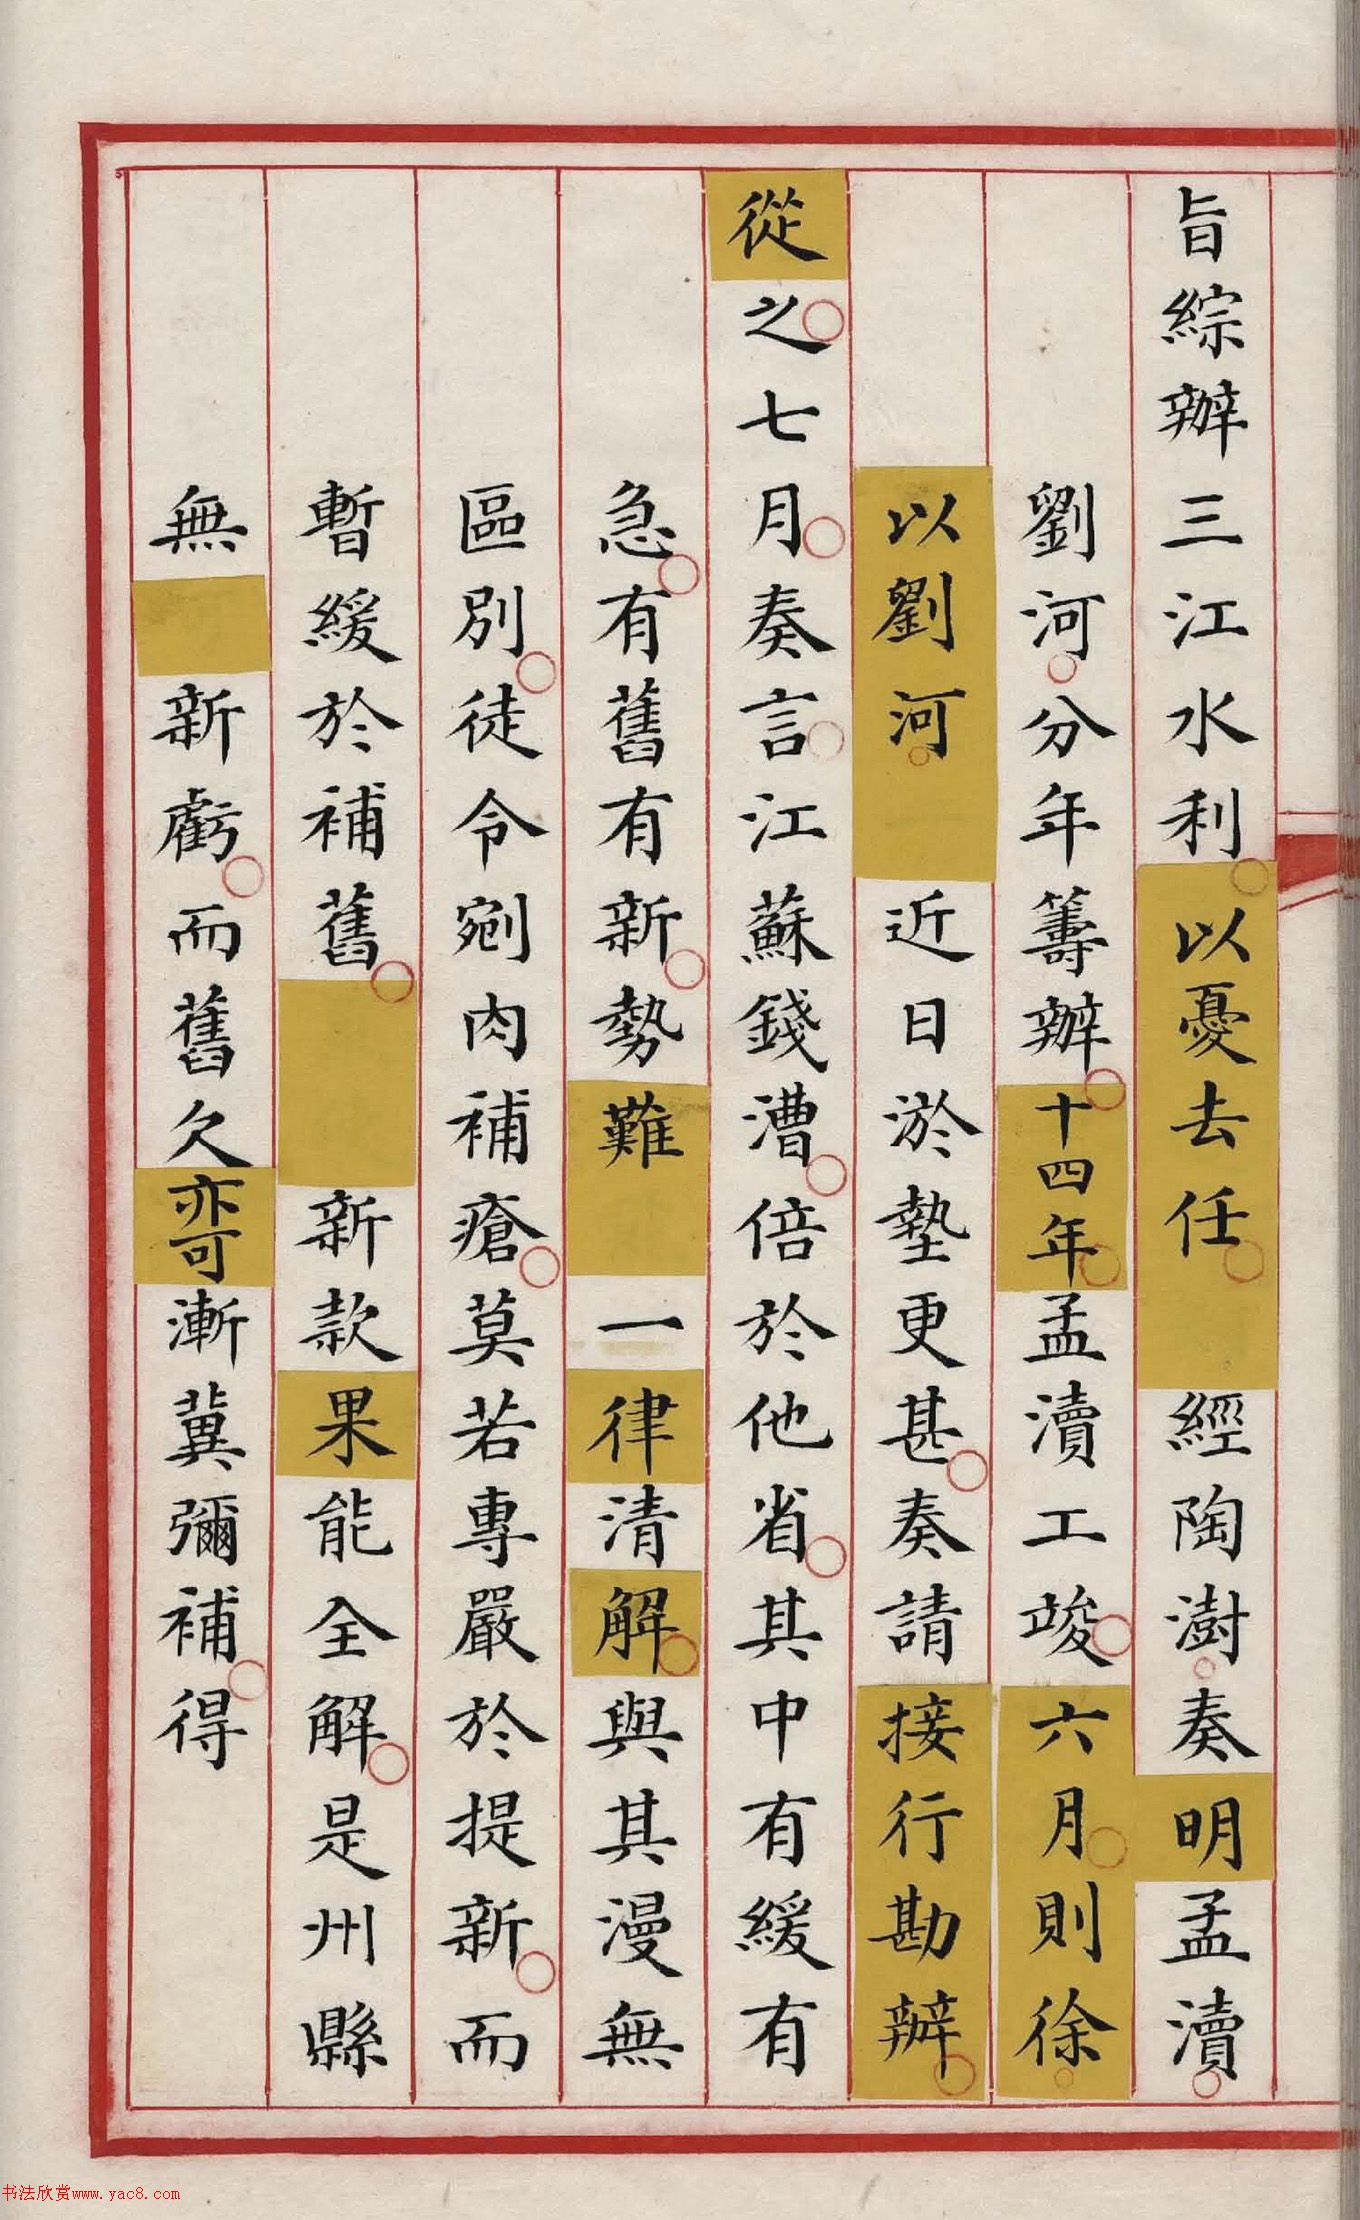 旨綜辦三江水利以憂去任經陶澍奏明孟瀆
劉河分年籌辦十四年孟瀆工竣六月則徐
以劉河近日淤墊更甚奏請接行勘辦
從之七月奏言江蘇錢漕倍於他省其中有緩有
急有舊有新勢難一律清解與其漫無
區別徒令剜肉補瘡莫若專嚴於提新而
暫緩於補舊新款果能全解是州縣
無新虧而舊欠亦可漸冀彌補得
书法欣赏www.yac8.com